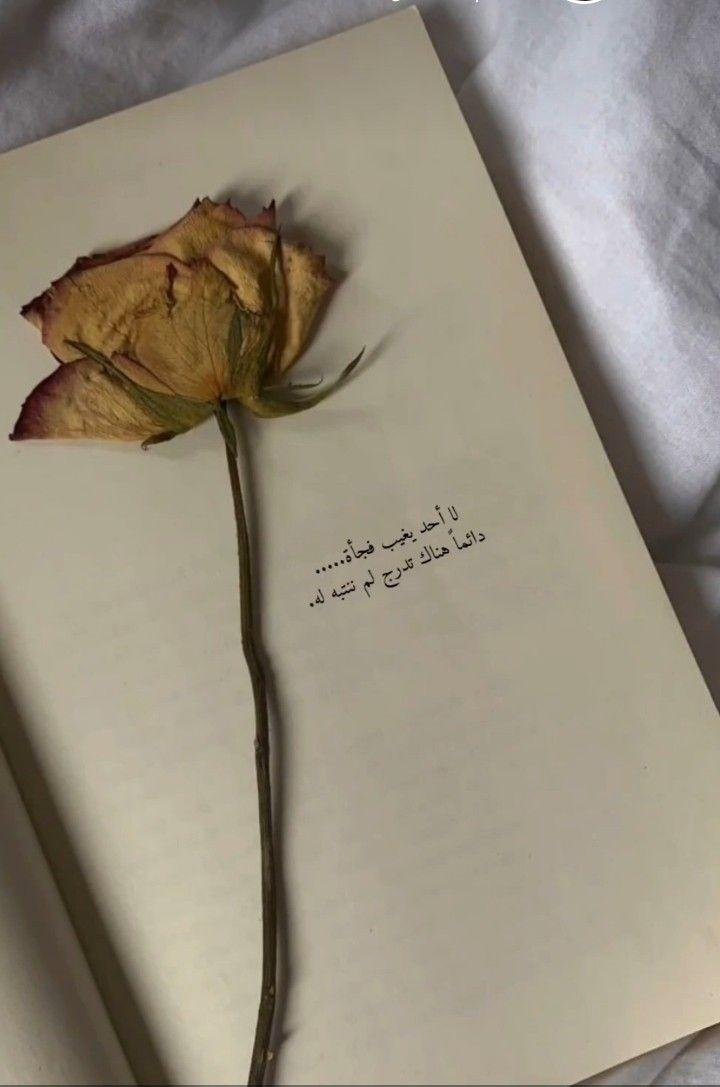 لا أحد يغيب فجأة.....
دائماً هناك تدرج لم ننتبه له.